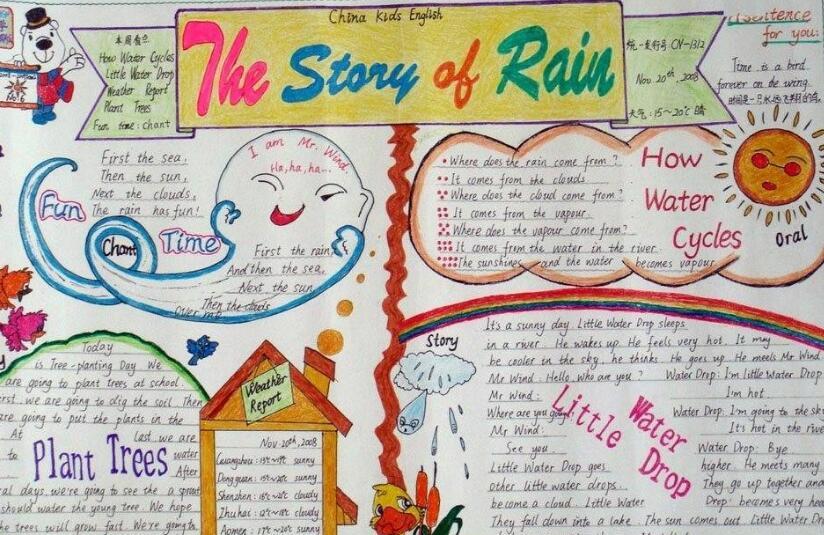 China Kids English
The Story of Rain
本周看点
How Water Cycles
Little Water Drop
Weather Report
Plant Trees
Fun time: chant
统一发行号 CN-1312
Nov. 20th, 2008
天气: 15~20℃ 晴
sentence
for you:
Time is a bird
forever on the wing.
时间是一只
No.6
First the sea,
Then the sun,
Next the clouds,
The rain has fun!
Fun
Chant
Time
I am Mr. Wind.
Ha, ha, ha...
First the rain,
And then the sea,
Next the sun,
Then the clouds
Over me
Where does the rain come from?
It comes from the clouds
Where does the cloud come from?
It comes from the vapour.
Where does the vapour come from?
It comes from the water in the river.
The sunshines and the water becomes vapour
How
Water
Cycles
Oral
Today
is Tree-planting Day. We
are going to plant trees at school.
rst. we are going to dig the soil. Then
are going to put the plants in the
At last, we are
to water
After
al days we're going to see the a sprout
should water the young tree. We hope
he trees will grow fast. We're going to
Plant Trees
Weather
Report
Nov. 20th, 2008
Guangzhou: sunny
Dongguan: sunny
Shenzhen: cloudy
Zhuhai: cloudy
Aomen: sunny
Story
It's a sunny day. Little Water Drop sleeps
in a river. He wakes up. He feels very hot. It may
be cooler in the sky, he thinks. He goes up. He meets Mr Wind.
Mr Wind: Hello, who are you? Water Drop: I'm little Water Drop
Mr Wind: I'm hot.
Where are you going? Water Drop: I'm going to the sky
Mr Wind: It's hot in the river
See you. Water Drop: Bye
Little Water Drop goes higher. He meets many
other little water drops. They go up together and
become a cloud. Little Water Drop becomes very hea
They fall down into a lake. The sun comes out. Little Water Dr
Little Water Drop